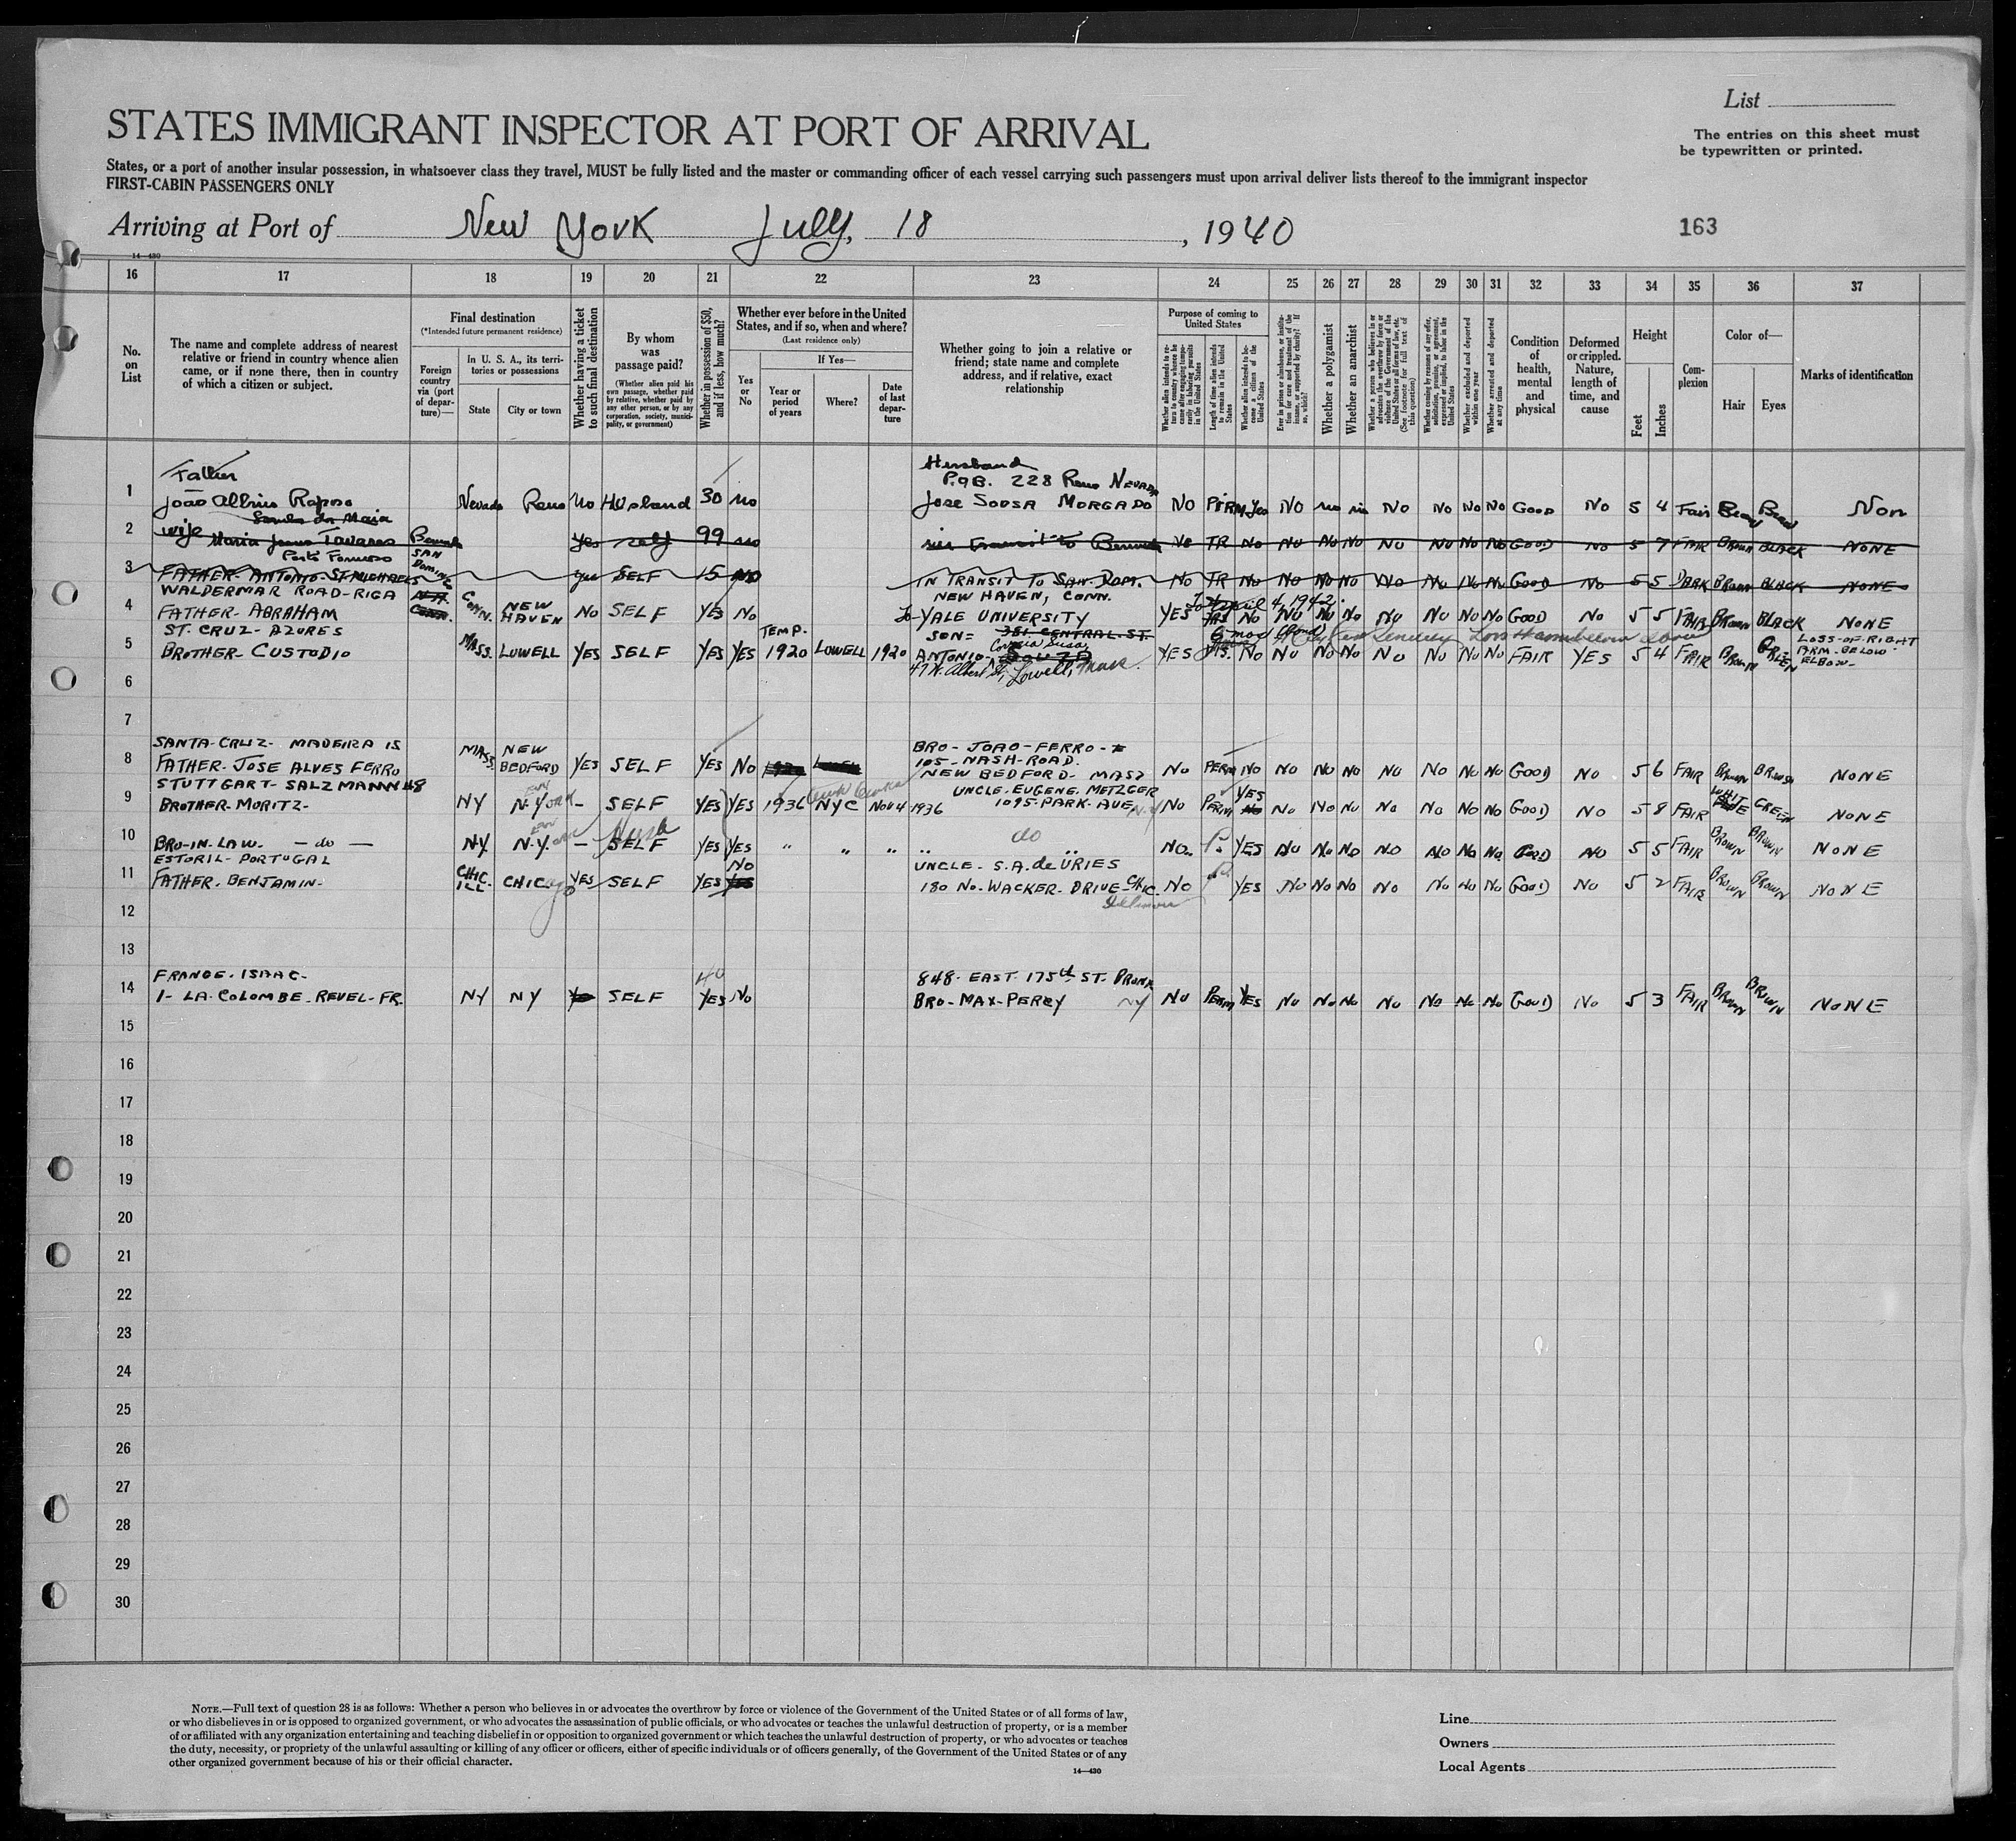 List
STATES IMMIGRANT INSPECTOR AT PORT OF ARRIVAL
The entries on this sheet must
be typewritten or printed.
States, or a port of another insular possession, in whatsoever class they travel, MUST be fully listed and the master or commanding officer of each vessel carrying such passengers must upon arrival deliver lists thereof to the immigrant inspector
FIRST-CABIN PASSENGERS ONLY
Arriving at Port of New York July, 18, 1940
163
14—430
16 17 18 19 20 21 22 23 24 25 26 27 28 29 30 31 32 33 34 35 36 37
No. on List
The name and complete address of nearest relative or friend in country whence alien came, or if none there, then in country of which a citizen or subject.
Final destination
(*Intended future permanent residence)
Foreign country via (port of departure)—
In U. S. A., its territories or possessions
State
City or town
Whether having a ticket to such final destination
By whom was passage paid?
(Whether alien paid his own passage, whether paid by relative, whether paid by any other person, or by any corporation, society, municipality, or government)
Whether in possession of $50, and if less, how much?
Whether ever before in the United States, and if so, when and where?
(Last residence only)
Yes or No
If Yes—
Year or period of years
Where?
Date of last departure
Whether going to join a relative or friend; state name and complete address, and if relative, exact relationship
Purpose of coming to United States
Length of time alien intends to remain in the United States
Whether alien intends to become a citizen of the United States
Whether a polygamist
Whether an anarchist
Whether excluded and deported within one year
Whether arrested and deported at any time
Condition of health, mental and physical
Deformed or crippled. Nature, length of time, and cause
Height
Feet
Inches
Complexion
Color of—
Hair
Eyes
Marks of identification
Father Husband
P.O.B. 228 Reno Nevada
1 João Albino Raposo Nevada Reno No Husband 30 no Jose Sousa Morgado NO PERM Yes NO no no NO No No No Good No 5 4 Fair Non
2 wife Maria Jesus Tavares Yes self 99 no in transit to No TR No No No No No No No No GOOD No 5 7 FAIR BROWN BLACK NONE
Porto Formoso SAN DOMING
3 FATHER- ANTONIO- ST MICHAELS yes SELF 15 NO IN TRANSIT TO SAN. DOM. No TR No No No No No No No No Good No 5 5 DARK BROWN BLACK NONE
WALDERMAR ROAD- RIGA NEW HAVEN, CONN.
4 FATHER- ABRAHAM CONN. NEW HAVEN NO SELF YES No YALE UNIVERSITY YES YRS No No No No No No No No GOOD No 5 5 FAIR BROWN BLACK NONE
ST. CRUZ- AZURES TEMP. SON= 381- CENTRAL- ST.
5 BROTHER- CUSTODIO MASS. LOWELL YES SELF YES YES 1920 LOWELL 1920 ANTONIO- SOUZA YES YRS. No No No No No No No No FAIR YES 5 4 FAIR BROWN GREEN LOSS-OF-RIGHT ARM- BELOW- ELBOW-
Albert St, Lowell, Mass.
6
7
SANTA-CRUZ- MADEIRA IS BRO- JOAO- FERRO-
8 FATHER- JOSE ALVES FERRO MASS. NEW BEDFORD YES SELF YES No 1920 105- NASH-ROAD. No PERM No No No No No No No No GOOD No 5 6 FAIR BROWN BROWN NONE
NEW BEDFORD- MASS
STUTTGART- SALZMANN 48 UNCLE- EUGENE- METZGER YES
9 BROTHER- MORITZ- NY N-Y - SELF YES YES 1936 NYC Nov 4 1936 1095-PARK-AVE NY No PERM No No No No No No No No GOOD No 5 8 FAIR WHITE GREEN NONE
10 BRO-IN-LAW. - do - NY. N-Y. - SELF YES YES " " " do NO P. YES No No No No No No No GOOD NO 5 5 FAIR BROWN BROWN NONE
ESTORIL- PORTUGAL No UNCLE- S.A. de VRIES
11 FATHER- BENJAMIN- CHIC. ILL CHICago YES SELF YES YES 180 No- WACKER- DRIVE- CHIC. No YES No No No No No No No GOOD No 5 2 FAIR BROWN BROWN NONE
Illinois
12
13
FRANCE- ISAAC- 40 848- EAST- 175th ST. BRONX
14 1- LA-COLOMBE- REVEL- FR. NY NY Yes SELF YES No BRO- MAX- PERCY NY No PERM YES No No No No No No No GOOD No 5 3 FAIR BROWN BROWN NONE
15
16
17
18
19
20
21
22
23
24
25
26
27
28
29
30
NOTE.—Full text of question 28 is as follows: Whether a person who believes in or advocates the overthrow by force or violence of the Government of the United States or of all forms of law,
or who disbelieves in or is opposed to organized government, or who advocates the assassination of public officials, or who advocates or teaches the unlawful destruction of property, or is a member
of or affiliated with any organization entertaining and teaching disbelief in or opposition to organized government or which teaches the unlawful destruction of property, or who advocates or teaches
the duty, necessity, or propriety of the unlawful assaulting or killing of any officer or officers, either of specific individuals or of officers generally, of the Government of the United States or of any
other organized government because of his or their official character.
14—430
Line
Owners
Local Agents